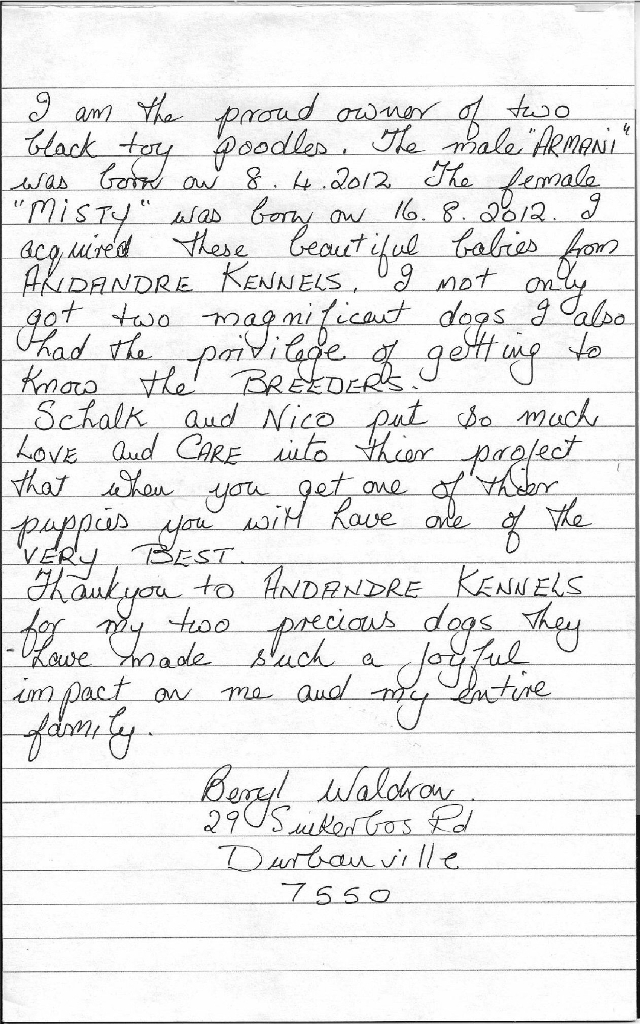 I am the proud owner of two
black toy poodles. The male "ARMANI"
was born on 8.4.2012 The female
"MISTY" was born on 16.8.2012. I
acquired these beautiful babies from
ANDANDRE KENNELS. I not only
got two magnificent dogs I also
had the privilege of getting to
know the BREEDERS.
Schalk and Nico put so much
LOVE and CARE into thier project
that when you get one of thier
puppies you will have one of the
VERY BEST.
Thankyou to ANDANDRE KENNELS
for my two precious dogs they
have made such a joyful
impact on me and my entire
family.
Beryl Waldron.
29 Suikerbos Rd
Durbanville
7550